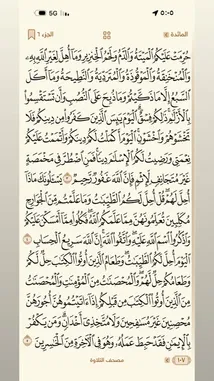 5G ٥:٠٥
المائدة الجزء ٦
حُرِّمَتْ عَلَيْكُمُ ٱلْمَيْتَةُ وَٱلدَّمُ وَلَحْمُ ٱلْخِنزِيرِ وَمَآ أُهِلَّ لِغَيْرِ ٱللَّهِ بِهِۦ
وَٱلْمُنْخَنِقَةُ وَٱلْمَوْقُوذَةُ وَٱلْمُتَرَدِّيَةُ وَٱلنَّطِيحَةُ وَمَآ أَكَلَ
ٱلسَّبُعُ إِلَّا مَا ذَكَّيْتُمْ وَمَا ذُبِحَ عَلَى ٱلنُّصُبِ وَأَن تَسْتَقْسِمُوا۟
بِٱلْأَزْلَٰمِ ۚ ذَٰلِكُمْ فِسْقٌ ۗ ٱلْيَوْمَ يَئِسَ ٱلَّذِينَ كَفَرُوا۟ مِن دِينِكُمْ فَلَا
تَخْشَوْهُمْ وَٱخْشَوْنِ ۚ ٱلْيَوْمَ أَكْمَلْتُ لَكُمْ دِينَكُمْ وَأَتْمَمْتُ عَلَيْكُمْ
نِعْمَتِى وَرَضِيتُ لَكُمُ ٱلْإِسْلَٰمَ دِينًا ۚ فَمَنِ ٱضْطُرَّ فِى مَخْمَصَةٍ
غَيْرَ مُتَجَانِفٍ لِّإِثْمٍ ۙ فَإِنَّ ٱللَّهَ غَفُورٌ رَّحِيمٌ ٣ يَسْـَٔلُونَكَ مَاذَآ
أُحِلَّ لَهُمْ ۖ قُلْ أُحِلَّ لَكُمُ ٱلطَّيِّبَٰتُ ۙ وَمَا عَلَّمْتُم مِّنَ ٱلْجَوَارِحِ
مُكَلِّبِينَ تُعَلِّمُونَهُنَّ مِمَّا عَلَّمَكُمُ ٱللَّهُ ۖ فَكُلُوا۟ مِمَّآ أَمْسَكْنَ عَلَيْكُمْ
وَٱذْكُرُوا۟ ٱسْمَ ٱللَّهِ عَلَيْهِ ۖ وَٱتَّقُوا۟ ٱللَّهَ ۚ إِنَّ ٱللَّهَ سَرِيعُ ٱلْحِسَابِ ٤
ٱلْيَوْمَ أُحِلَّ لَكُمُ ٱلطَّيِّبَٰتُ ۖ وَطَعَامُ ٱلَّذِينَ أُوتُوا۟ ٱلْكِتَٰبَ حِلٌّ لَّكُمْ
وَطَعَامُكُمْ حِلٌّ لَّهُمْ ۖ وَٱلْمُحْصَنَٰتُ مِنَ ٱلْمُؤْمِنَٰتِ وَٱلْمُحْصَنَٰتُ
مِنَ ٱلَّذِينَ أُوتُوا۟ ٱلْكِتَٰبَ مِن قَبْلِكُمْ إِذَآ ءَاتَيْتُمُوهُنَّ أُجُورَهُنَّ
مُحْصِنِينَ غَيْرَ مُسَٰفِحِينَ وَلَا مُتَّخِذِىٓ أَخْدَانٍ ۗ وَمَن يَكْفُرْ
بِٱلْإِيمَٰنِ فَقَدْ حَبِطَ عَمَلُهُۥ وَهُوَ فِى ٱلْءَاخِرَةِ مِنَ ٱلْخَٰسِرِينَ ٥
١٠٧ مصحف التلاوة